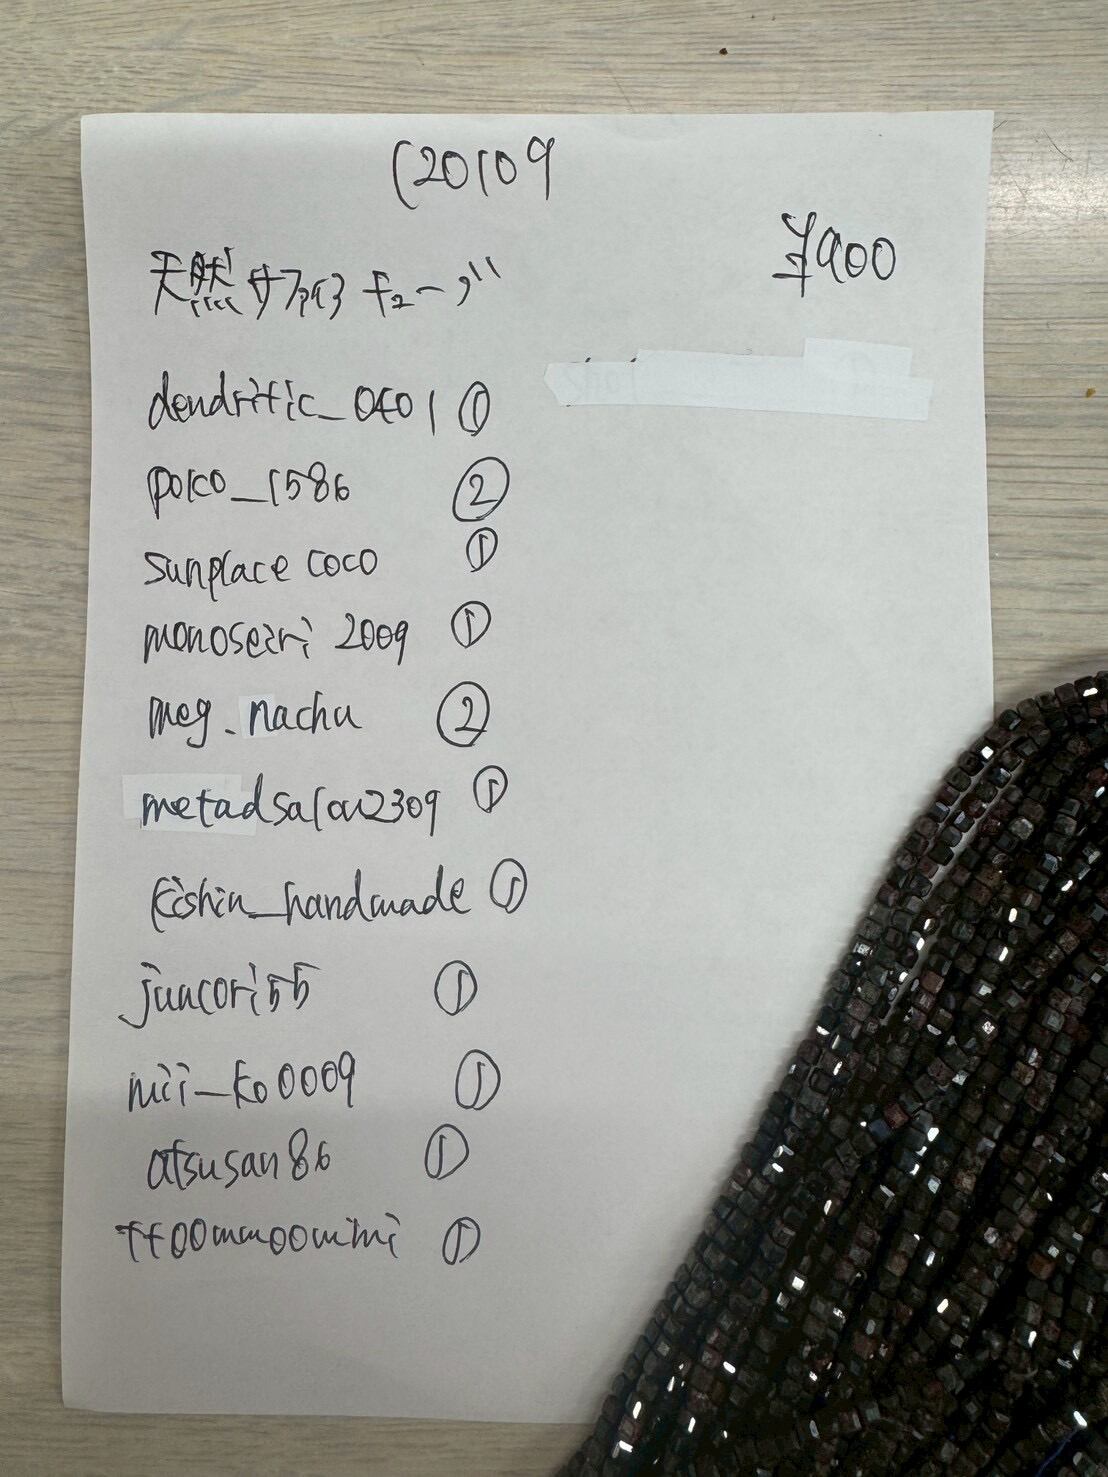 120109
¥900
天然サファイア キューブ
dendritic_0401 ①
poko_1586 ②
sunplace coco ①
monoseiri 2009 ①
meg.nachu ②
metadsalon2309 ①
kishin_handmade ①
juncori55 ①
mii_ko0009 ①
atsusan86 ①
tt00mm00mimi ①